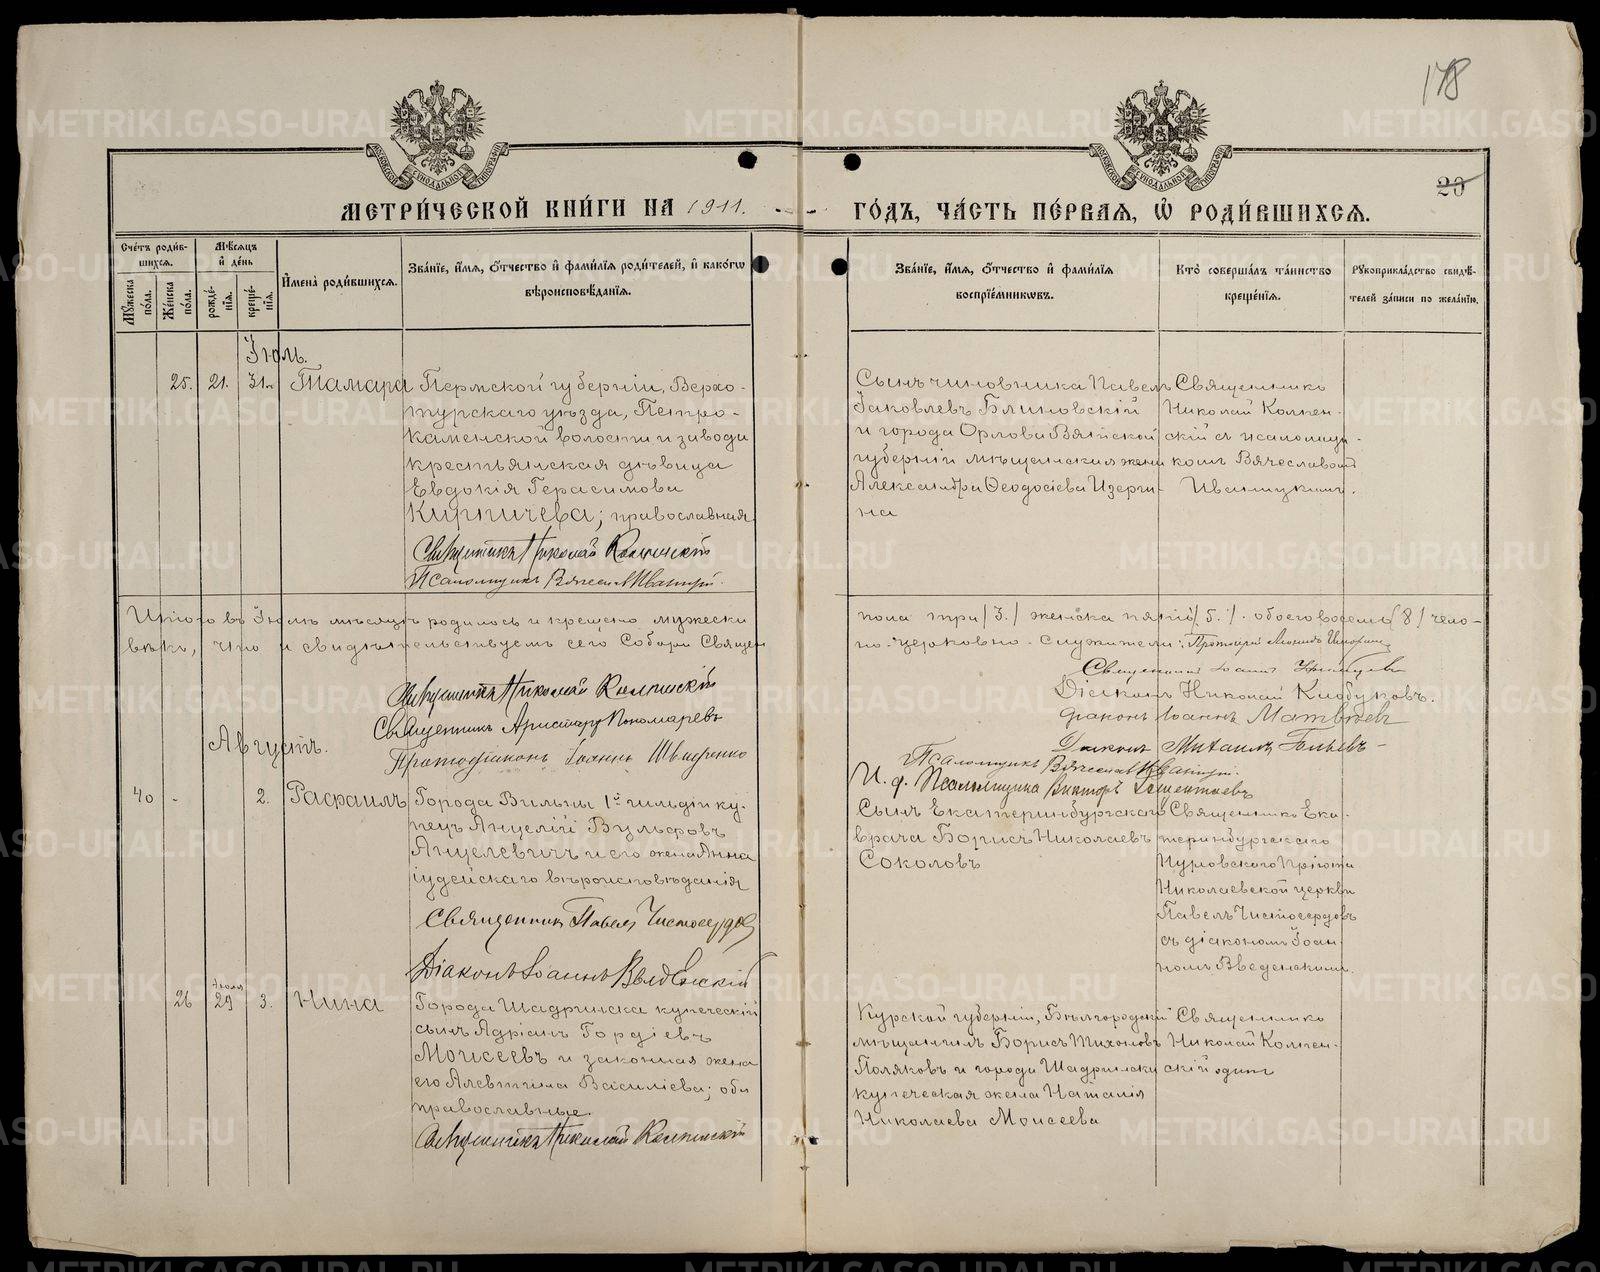 178
20
МОСКОВСКОЙ СѴНОДАЛЬНОЙ ТИПОГРАФІИ
МОСКОВСКОЙ СѴНОДАЛЬНОЙ ТИПОГРАФІИ
МЕТРИ́ЧЕСКОЙ КНИ́ГИ НА 1911.
ГО́ДЪ, ЧА́СТЬ ПЕ́РВАЯ, Ѡ҆ РОДИ́ВШИХСЯ.
Сче́тъ роди́в-
шихся.
Мѹ́жеска по́ла.
Же́нска по́ла.
Мѣ́сяцъ
и҆ де́нь
рожде́-
нія.
креще́-
нія.
И҆мена̀ роди́вшихся.
Зва́нїе, и҆́мя, ѻ҆́тчество и҆ фами́лїя роди́телей, и҆ како́гѡ
вѣроисповѣ́данїя.
Зва́нїе, и҆́мя, ѻ҆́тчество и҆ фами́лїя
воспрїе́мникѡвъ.
Кто̀ соверша́лъ та́инство
креще́нїя.
Рѹкоприкла́дство свидѣ́-
телей за́писи по жела́нїю.
Іюль.
25. 21. 31. Тамара
Пермской губерніи, Верхо-
турскаго уѣзда, Петро-
каменской волости и завода
крестьянская дѣвица
Евдокія Герасимова
Кирпичева; православная
Священникъ Николай Колпенскій
Псаломщикъ Вячеславъ Иваницкій.
Сынъ чиновника Павелъ
Іаковлевъ Блиновскій
и города Орлова Вятской
губерніи мѣщанская жена
Александра Ѳеодосіева Изерги-
на
Священникъ
Николай Колпен-
скій съ псаломщи-
комъ Вячеславомъ
Иваницкимъ.
Итого въ Іюлѣ мѣсяцѣ родилось и крещено мужеска
пола три /3./ женска пять /5./. обоего восемь /8/ чело-
вѣкъ, что и свидѣтельствуемъ сего Собора Священ
но-церковно-служители: Протоіерей
Священникъ Николай Колпенскій
Священникъ Аристархъ Пономаревъ
Протодіаконъ Іоаннъ
Священникъ Іоаннъ
Діаконъ Николай Клобуковъ.
Діаконъ Іоаннъ Матвѣевъ
Діаконъ Михаилъ
Псаломщикъ Вячеславъ Иваницкій.
И. д. Псаломщика Викторъ
Августъ.
40 - 2. Рафаилъ
Города Вильны 1й гильдіи ку-
пецъ Анцелій Вульфовъ
Анцелевичъ и его жена Анна
іудейскаго вѣроисповѣданія
Священникъ Павелъ Чистосердовъ
Діаконъ Іоаннъ Введенскій
Сынъ Екатеринбургскаго
врача Борисъ Николаевъ
Соколовъ
Священникъ Ека-
теринбургскаго
Нуровскаго Пріюта
Николаевской церкви
Павелъ Чистосердовъ
съ діакономъ Іоан-
номъ Введенскимъ.
26 Іюля 29 3. Нина
Города Шадринска купеческій
сынъ Адріанъ Гордіевъ
Моисеевъ и законная жена
его Алевтина Василіева; оба
православные.
Священникъ Николай Колпенскій
Курской губерніи, Бѣлгородскій
мѣщанинъ Борисъ Тихоновъ
Поляковъ и города Шадринска
купеческая жена Наталія
Николаева Моисеева
Священникъ
Николай Колпен-
скій одинъ
METRIKI.GASO-URAL.RU